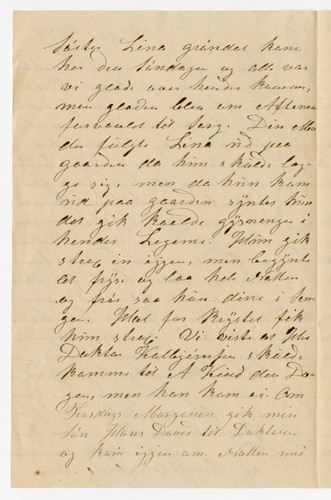 søster Lina grandet kam
her den Søndagen og alle var
vi glade over hendes kamme,
men glæden blev om Aftenen
forvandlet til sorg. Din Mor
da fulgte Lina ud paa
gaarden da hun skulde læg
ge sig, men da hun kam
ud paa gaarden syntes hun
det gik kaalde gysninger i
hendes Legeme. Hun gik
strax in igjen, men begynte
at fryse og laa hele Natten
og frøs saa hun dirre i Sen
gen. Hold for Brystet fik
hun strax. Vi viste at
Doktor skulde
komme til A Kind den Da-
gen, men han kam ei. Om
Tirsdags Morgenen gik min
søn Hans David til Doktoren
og kam igjen om Natten med